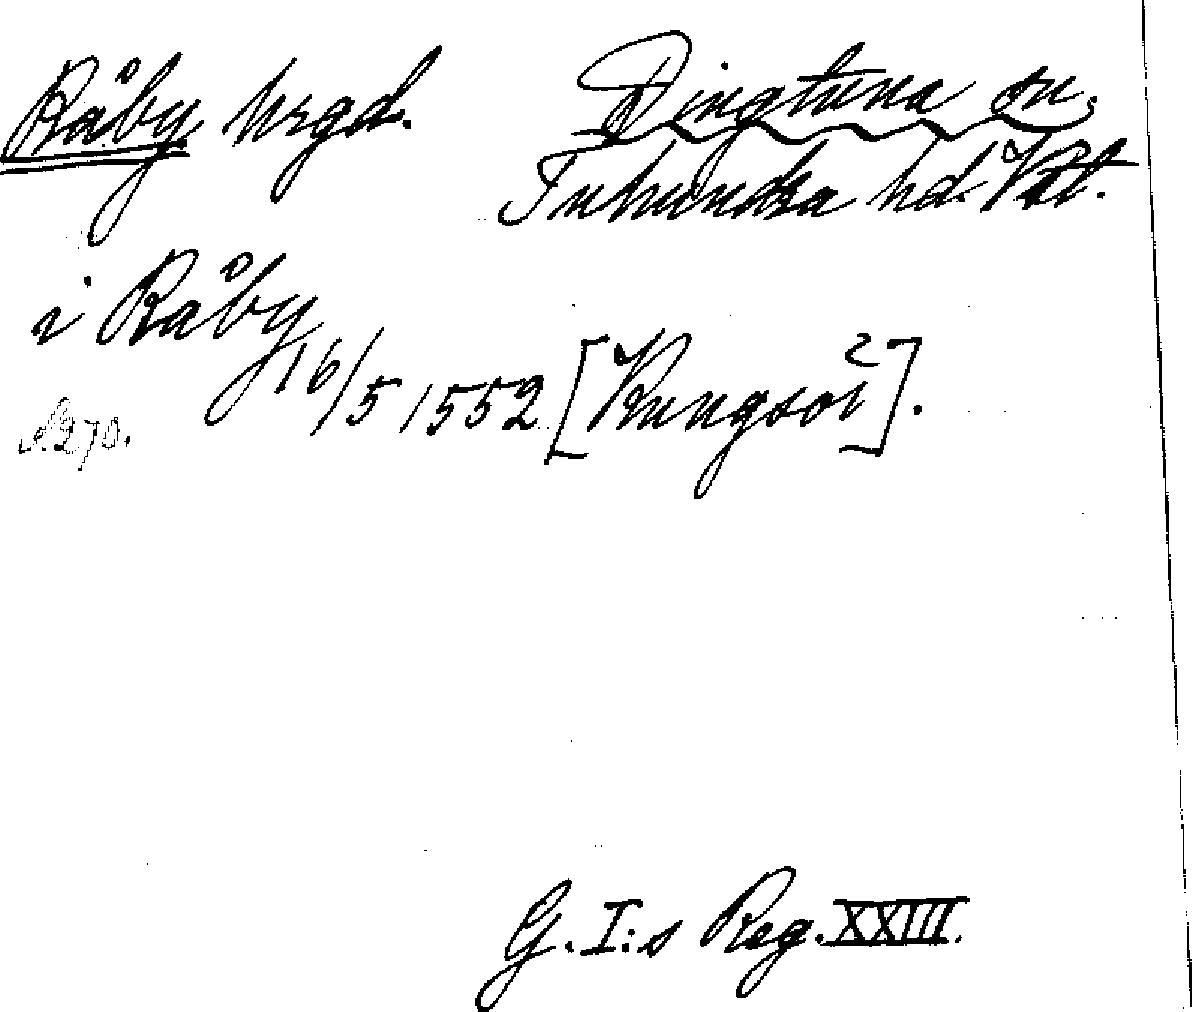 Råby hrgd. Dingtuna sn.
Tuhundra hd. Vstl.
i Råby
16/5 1552 [Kungsör].
s. 270.
G. I:s Reg. XXIII.